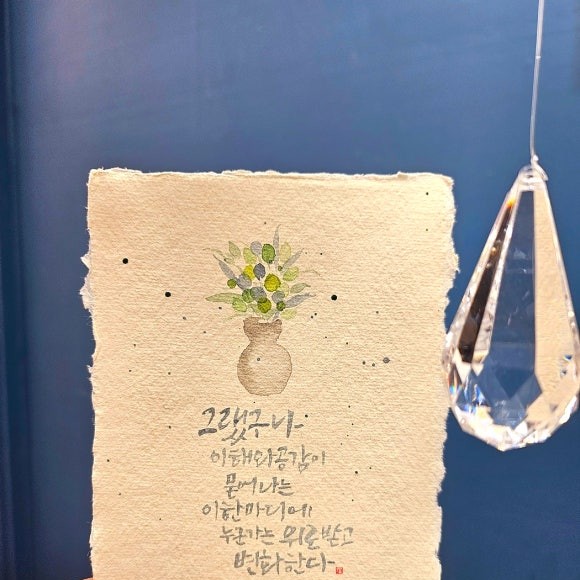 그랬구나
이해와 공감이
묻어나는
이 한마디에
누군가는 위로받고
변화한다